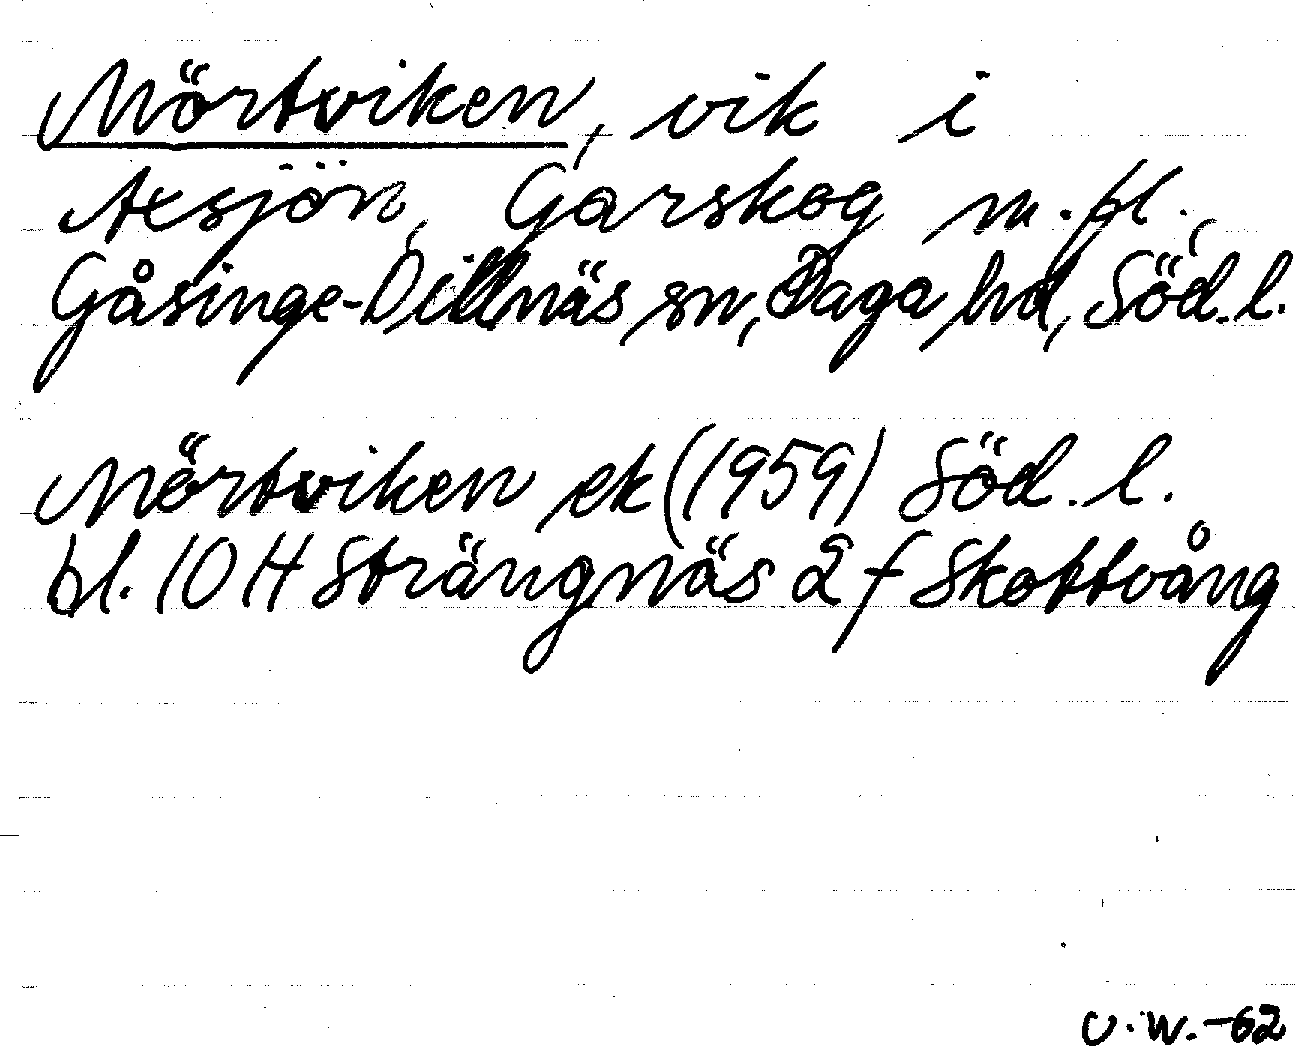 Mörtviken, vik i
Axsjön, Garskog m.fl.,
Gåsinge-Dillnäs sn, Daga hd, Söd.l.
Mörtviken ek (1959) Söd.l.
bl. 10 H Strängnäs 2 f Skottvång
U.W.-62